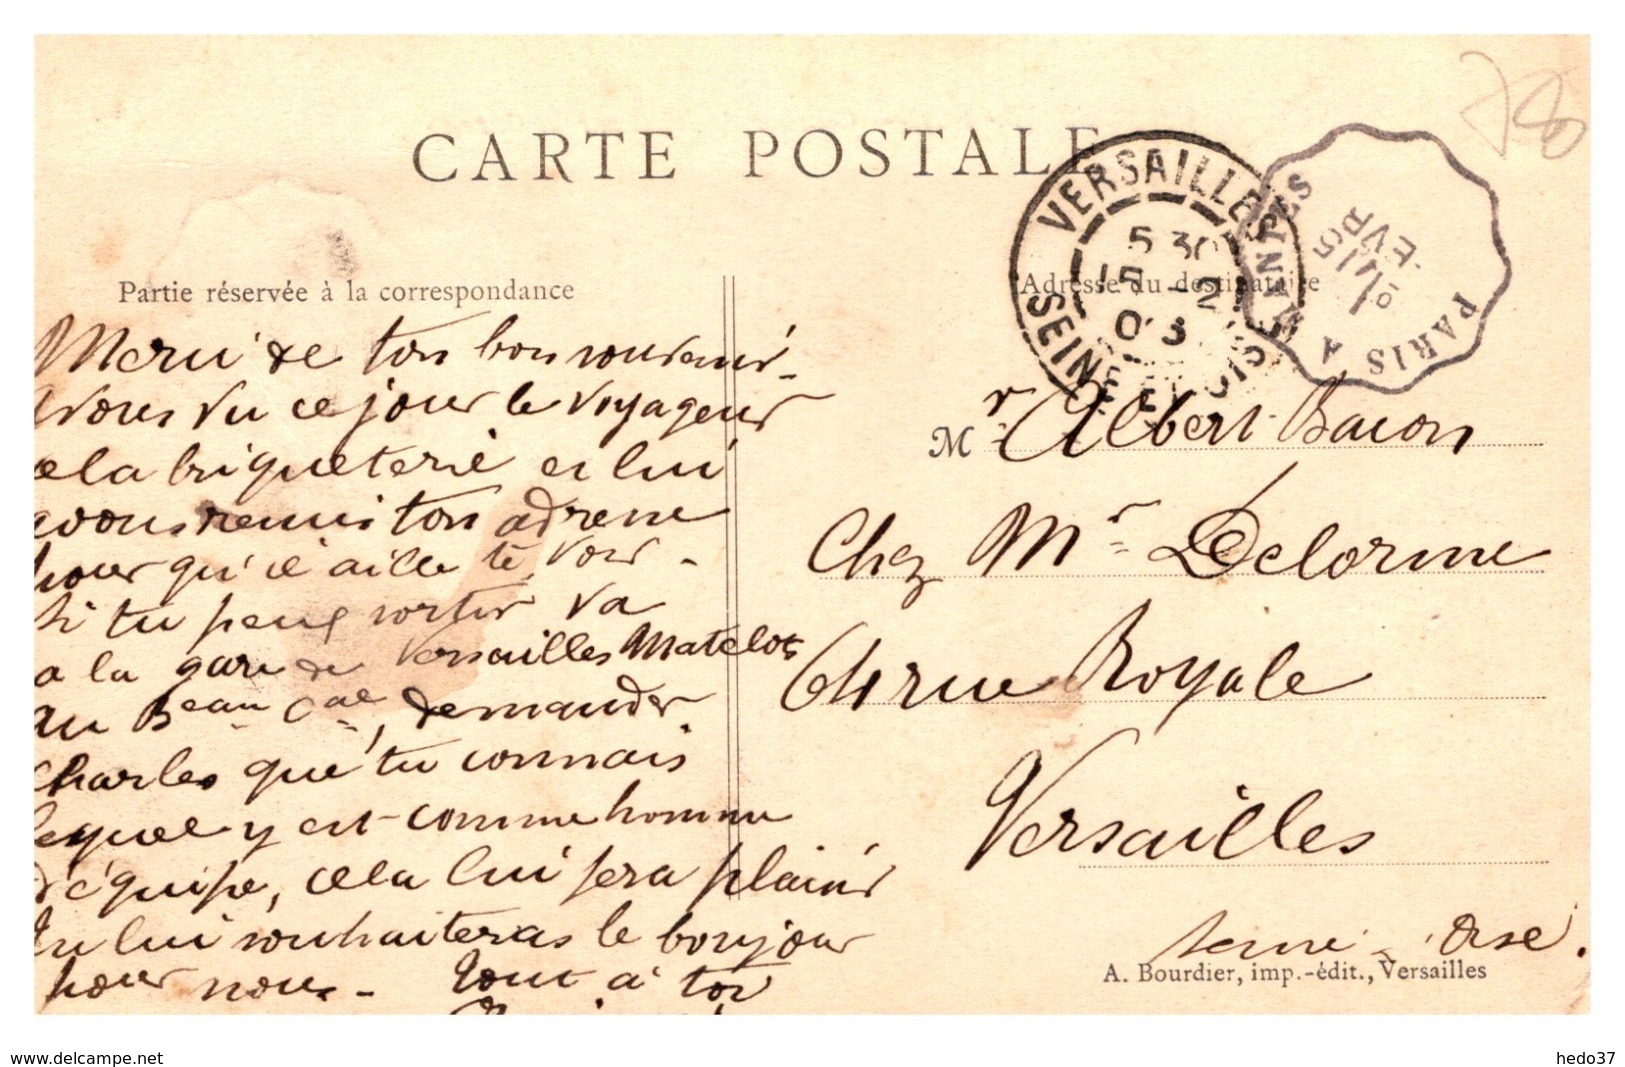 CARTE POSTALE
VERSAILLES
5 30
15 - 2
05
SEINE ET OISE
PARIS A NANTES
FEVR
05
78
Partie réservée à la correspondance
Adresse du destinataire
Merci de ton bon souvenir -
avons vu ce jour le voyageur
de la briqueterie et lui
avons remis ton adresse
pour qu'il aille te voir -
Si tu peux sortir va
a la gare de Versailles Matelots
au Beau Cal, demander
Charles que tu connais
lequel y est comme homme
d'équipe, cela lui fera plaisir
tu lui souhaiteras le bonjour
pour nous - Tout à toi
Mr Albert Baron
Chez Mr Delorme
64 rue Royale
Versailles
Seine - Oise.
A. Bourdier, imp.-édit., Versailles
www.delcampe.net
hedo37